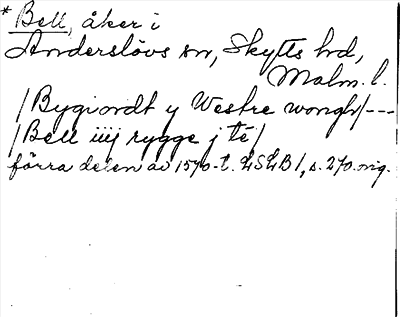 * Bell, åker i
Anderslövs sn, Skytts hd,
Malm. l.
/Bygiordt y Westre wongh/---
/Bell iiij rygge j té/
förra delen av 1570-t. LSLB 1, s. 270. orig.